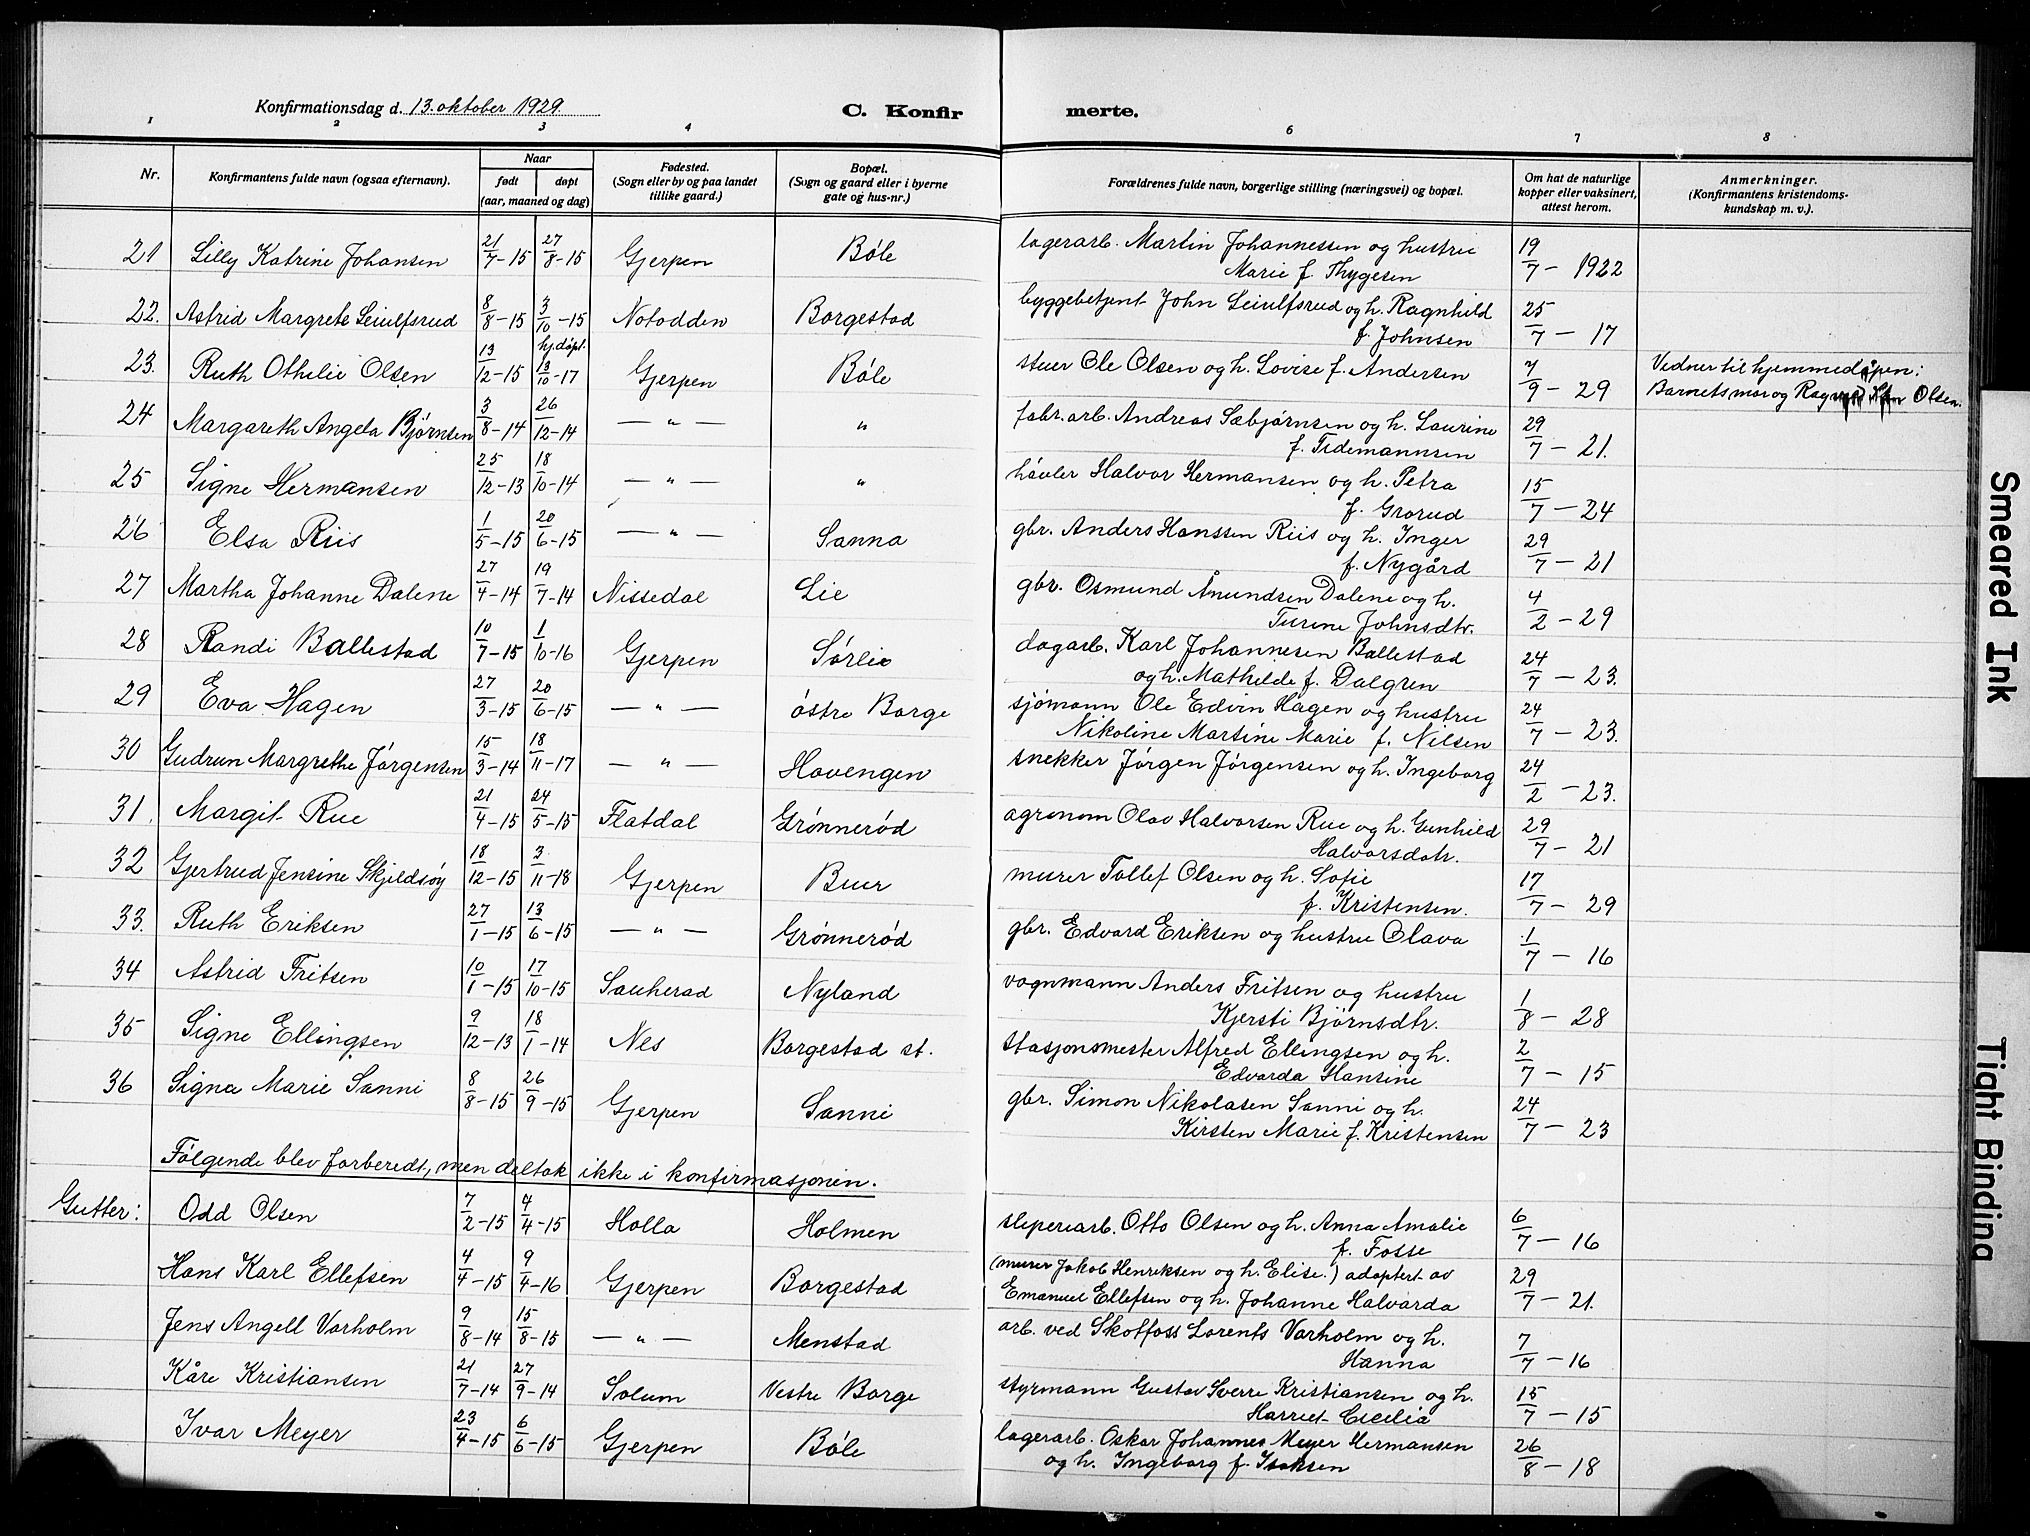 Konfirmationsdag d. 13. oktober 1929. C. Konfir merte.
1 2 3 4 5 6 7 8
Nr. Konfirmantens fulde navn (ogsaa efternavn). Naar født døpt (aar, maaned og dag) Fødested. (Sogn eller by og paa landet tillike gaard.) Bopæl. (Sogn og gaard eller i byerne gate og hus-nr.) Forældrenes fulde navn, borgerlige stilling (næringsvei) og bopæl. Om hat de naturlige kopper eller vaksinert, attest herom. Anmerkninger. (Konfirmantens kristendomskundskap m. v.).
21 Lilly Katrine Johansen 21/7-15 27/8-15 Gjerpen Bøle lagerarb. Martin Johannessen og hustru 19/7-1922
Marie f. Thygesen
22. Astrid Margrete Leiulfsrud 8/8-15 3/10-15 Notodden Borgestad byggebetjent John Leiulfsrud og h. Ragnhild 25/7-17
f. Johnsen
23. Ruth Othelie Olsen 13/12-15 hj.døpt. 13/10-17 Gjerpen Bøle stuer Ole Olsen og h. Lovise f. Andersen 7/9-29 Vidner til hjemmedåpen:
Barnets mor og Olsen.
24 Margareth Angela Bjørnsen 3/8-14 26/12-14 — " — " fabr.arb. Andreas Sæbjørnsen og h. Laurine 29/7-21.
f. Tidemannsen
25 Signe Hermansen 25/12-13 18/10-14 — " — " høvler Halvor Hermansen og h. Petra 15/7-24
f. Grorud
26 Elsa Riis 1/5-15 20/6-15 — " — Sanna gbr. Anders Hanssen Riis og h. Inger 29/7-21
f. Nygård
27 Martha Johanne Dalene 27/4-14 19/7-14 Nissedal Lie gbr. Osmund Åmundsen Dalene og h. 4/2-29
Turine Johnsdtr.
28 Randi Ballestad 10/7-15 1/10-16 Gjerpen Sørlie dagarb. Karl Johannesen Ballestad 24/7-23.
og h. Mathilde f. Dalgren
29 Eva Hagen 27/3-15 20/6-15 — " — østre Borge sjømann Ole Edvin Hagen og hustru 24/7-23.
Nikoline Martine Marie f. Nilsen
30 Gudrun Margrethe Jørgensen 15/3-14 18/11-17 — " — Hovengen snekker Jørgen Jørgensen og h. Ingeborg 24/2-23.
31. Margit Rue 21/4-15 24/5-15 Flatdal Grønnerød agronom Olav Halvorsen Rue og h. Gunhild 29/7-21
Halvorsdatr.
32 Gjertrud Jensine Skjeldsøy 18/12-15 3/11-18 Gjerpen Buer murer Tollef Olsen og h. Sofie 17/7-29
f. Kristensen.
33. Ruth Eriksen 27/1-15 13/6-15 — " — Grønnerød gbr. Edvard Eriksen og hustru Olava 1/7-16
34 Astrid Fritsen 10/1-15 17/10-15 Sauherad Nyland vognmann Anders Fritsen og hustru 1/8-28
Kjersti Bjørnsdtr.
35 Signe Ellingsen 9/12-13 18/1-14 Nes Borgestad st. stasjonsmester Alfred Ellingsen og h. 2/7-15
Edvarda Hansine
36 Signe Marie Sanni 8/8-15 26/9-15 Gjerpen Sanni gbr. Simon Nikolasen Sanni og h. 24/7-23
Kirsten Marie f. Kristensen
Følgende blev forberedt, men deltok ikke i konfirmasjonen.
Gutter: Odd Olsen 7/2-15 4/4-15 Holla Holmen sliperiarb. Otto Olsen og h. Anna Amalie 6/7-16
f. Fosse
Hans Karl Ellefsen 4/4-15 9/4-16 Gjerpen Borgestad (murer Jakob Henriksen og h. Elise.) adoptert av 29/7-21.
Emanuel Ellefsen og h. Johanne Halvarda
Jens Angell Varholm 9/8-14 15/8-15 — " — Menstad arb. ved Skotfoss Lorents Varholm og h. 7/7-16
Hanna
Kåre Kristiansen 21/7-14 27/9-14 Solum Vestre Borge styrmann Gustav Sverre Kristiansen og h. 15/7-15
Harriet Cicilia
Ivar Meyer 23/4-15 6/6-15 Gjerpen Bøle lagerarb. Oskar Johannes Meyer Hermansen 26/8-18
og h. Ingeborg f. Isaksen
Smeared Ink
Tight Binding